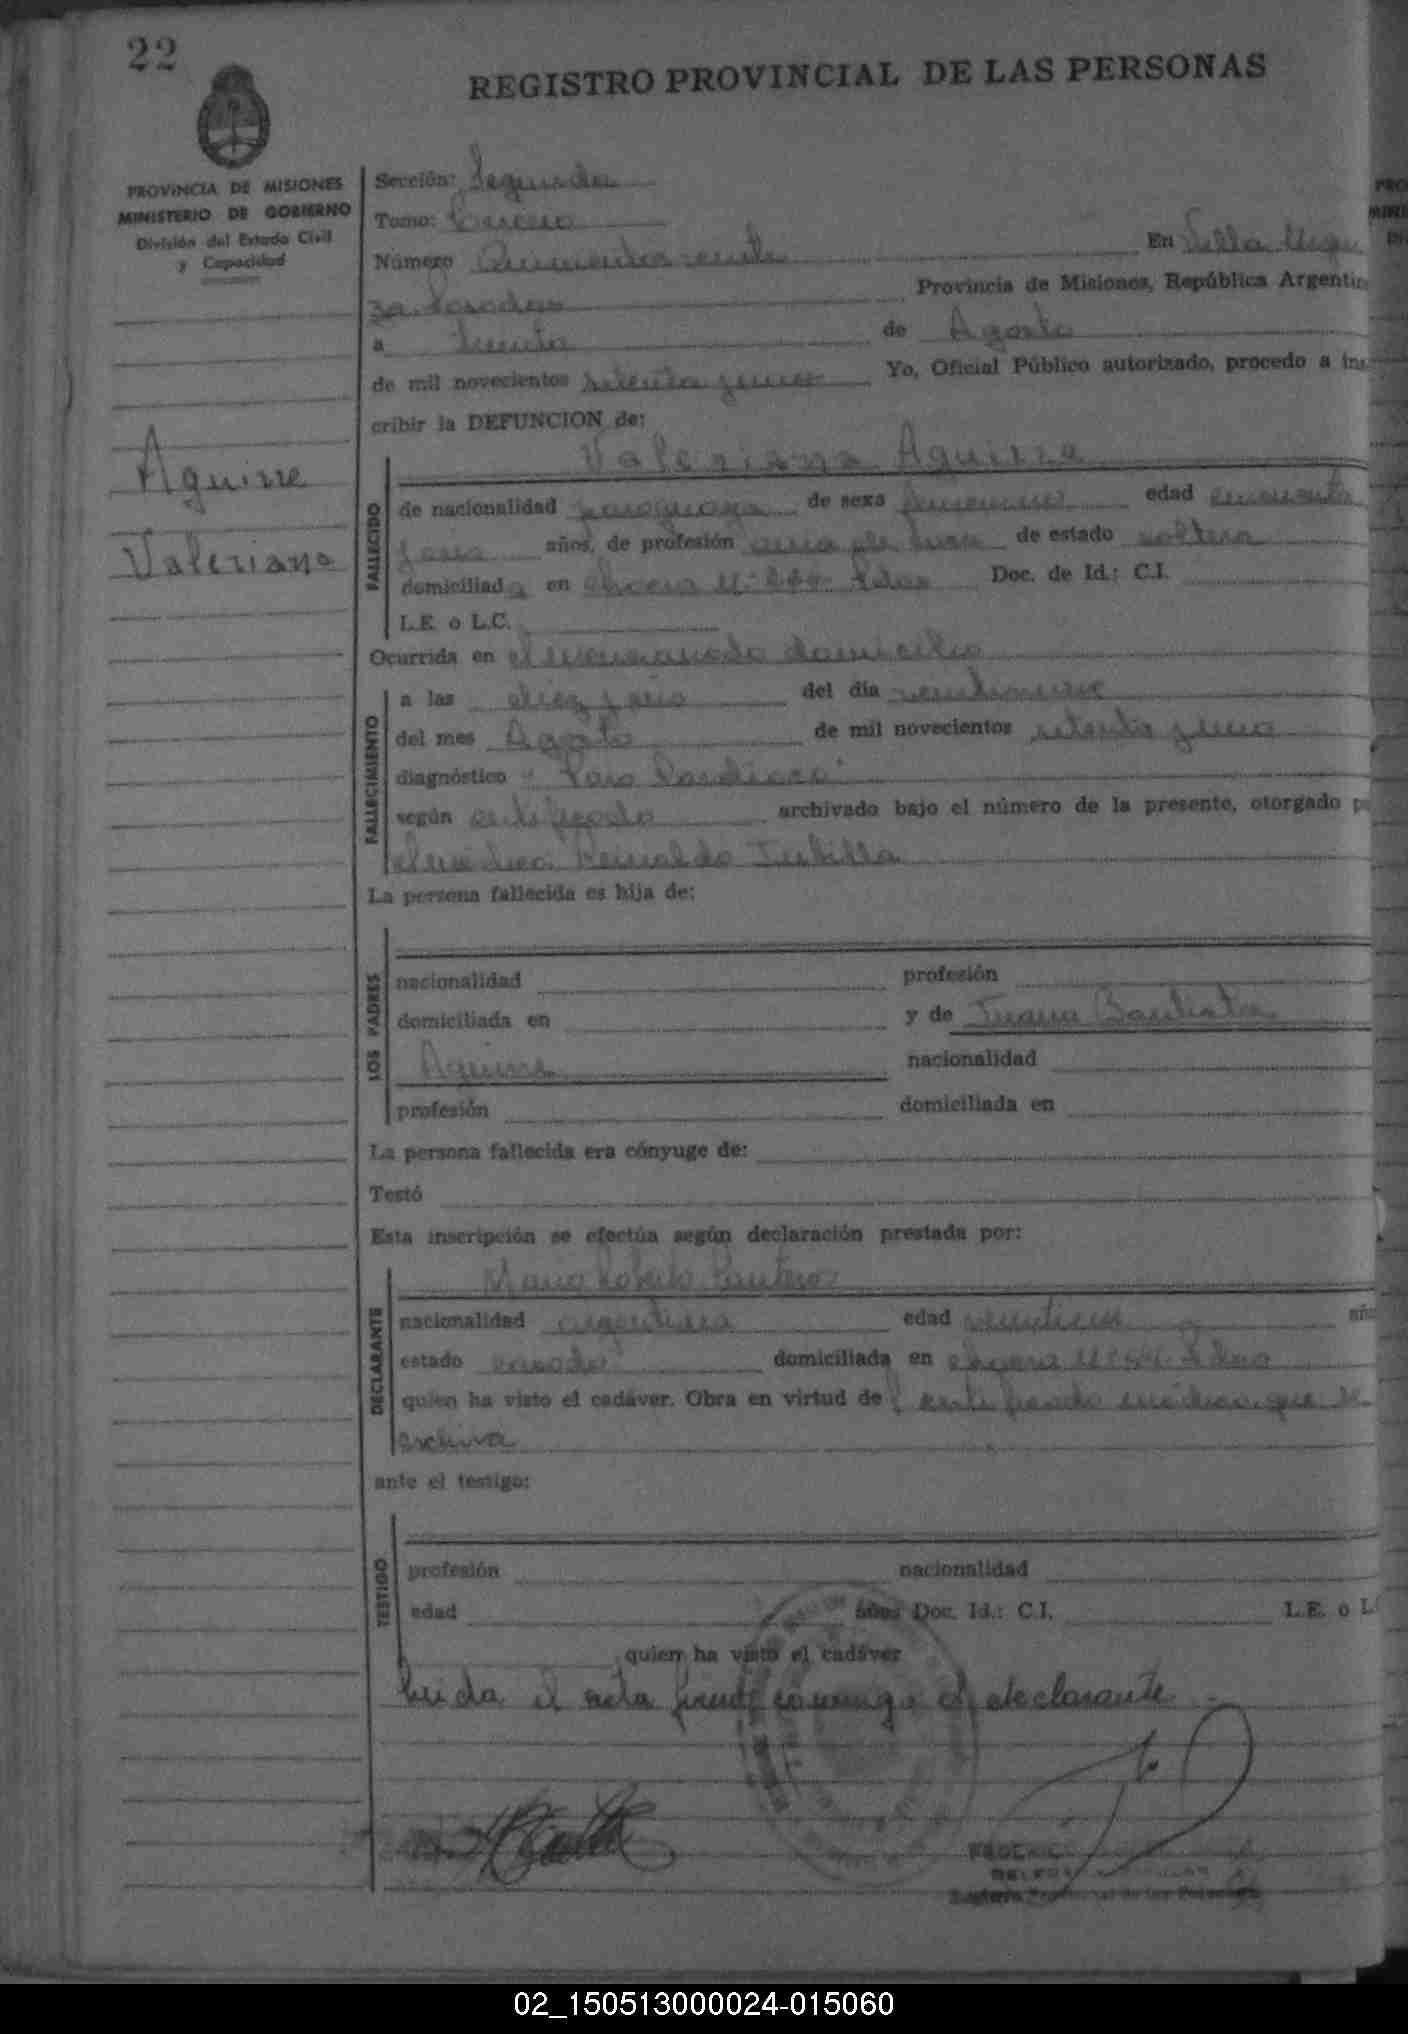 22
REGISTRO PROVINCIAL DE LAS PERSONAS
PROVINCIA DE MISIONES
MINISTERIO DE GOBIERNO
División del Estado Civil
y Capacidad
Sección: Segunda
Tomo:
Número Quinientos veinte En Villa Urqui
za Posadas Provincia de Misiones, República Argentin
a treinta de Agosto
de mil novecientos setenta y uno Yo, Oficial Público autorizado, procedo a ins
cribir la DEFUNCION de:
Valeriana Aguirre
Aguirre
Valeriana
FALLECIDO
de nacionalidad paraguaya de sexo femenino edad cincuenta
y seis años, de profesión ama de casa de estado soltera
domiciliada en chacra Nº Pdas Doc. de Id.: C.I.
L.E. o L.C.
Ocurrida en el mencionado domicilio
FALLECIMIENTO
a las diez y seis del día veintinueve
del mes Agosto de mil novecientos setenta y uno
diagnóstico "Paro Cardiaco"
según certificado archivado bajo el número de la presente, otorgado p
el médico Reinaldo
La persona fallecida es hija de:
LOS PADRES
nacionalidad profesión
domiciliada en y de Juana Bautista
Aguirre nacionalidad
profesión domiciliada en
La persona fallecida era cónyuge de:
Testó
Esta inscripción se efectúa según declaración prestada por:
DECLARANTE
Mario Roberto
nacionalidad argentina edad añ
estado casado domiciliada en chacra Nº Pdas
quien ha visto el cadáver. Obra en virtud de certificado médico que se
archiva
ante el testigo:
TESTIGO
profesión nacionalidad
edad años Doc. Id.: C.I. L.E. o L
quien ha visto el cadáver
Leida el acta firma conmigo el declarante
Registro Provincial de las Personas
02_150513000024-015060